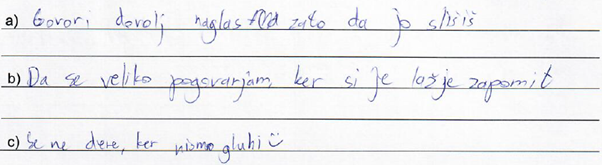 a) Govori dovolj naglas zato da jo slišiš
b) Da se veliko pogovarjam, ker si je lažje zapomit
c) Se ne dere, ker nismo gluhi☺